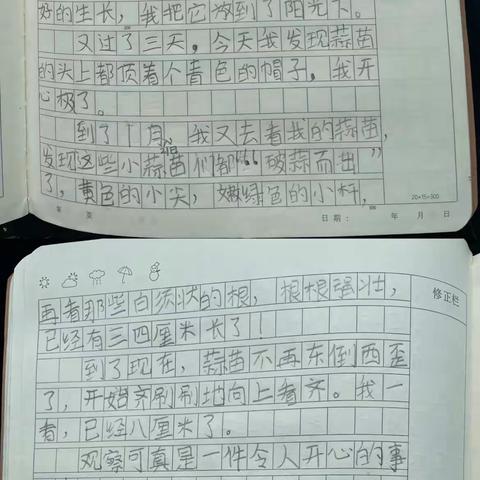 好的生长，我把它放到了阳光下。
又过了三天。今天我发现蒜苗
的头上都顶着个青色的帽子，我开
心极了。
到了1月2日，我又去看我的蒜苗，
发现这些小蒜苗们都“破蒜而出”
了，黄色的小尖，嫩绿色的小杆，
第 页 日期： 年 月 日
20×15=300
修正栏
再看那些白须状的根，根根强壮，
已经有三四厘米长了！
到了现在，蒜苗不再东倒西歪
了，开始齐刷刷地向上看齐。我一
看，已经八厘米了。
观察可真是一件令人开心的事